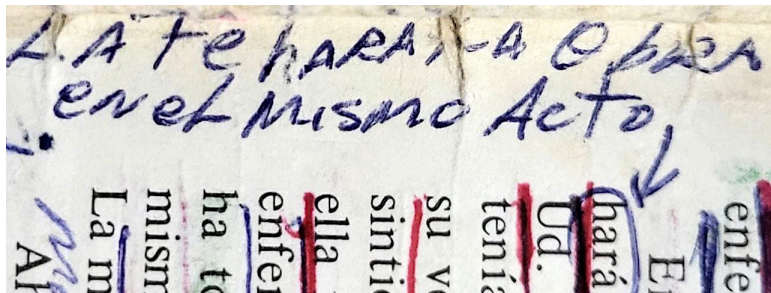 LA Fe hARA LA OBRA
EN eL MisMO ActO,
enfe
hará
Ud.
tenía
su ve
sintió
ella
enfer
ha to
mism
La m